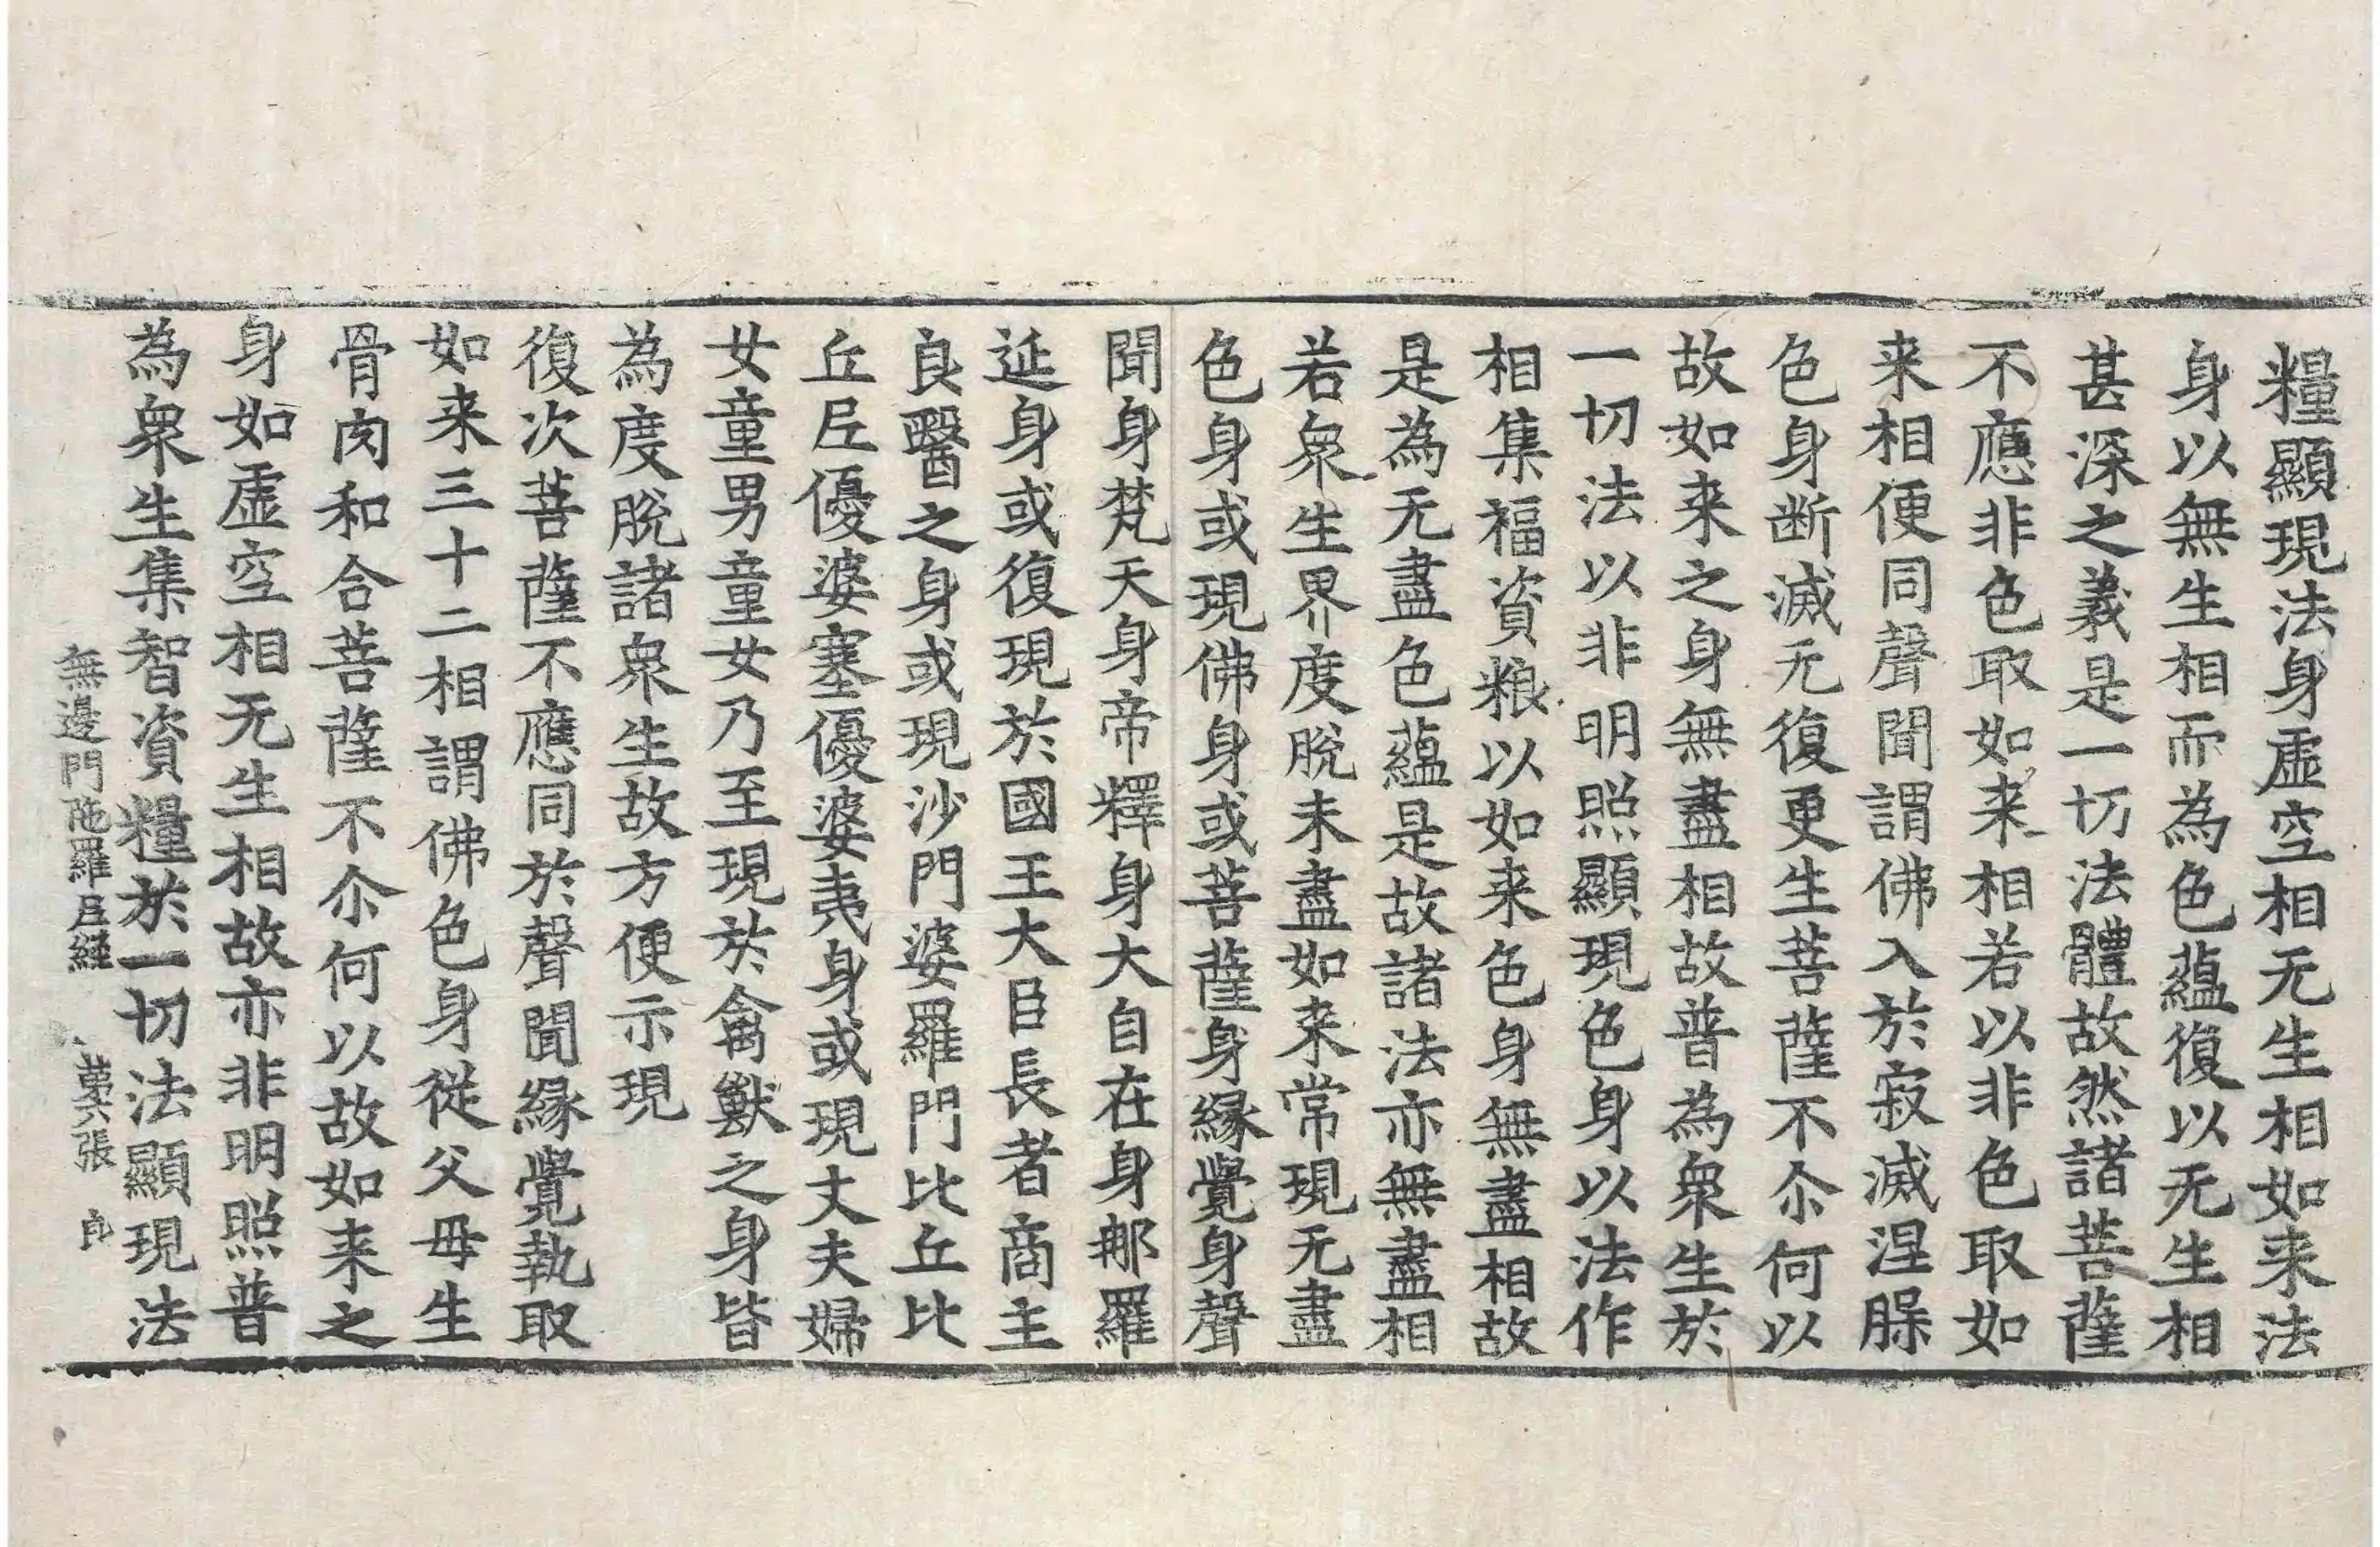 糧顯現法身虛空相无生相如来法
身以無生相而為色蘊復以无生相
甚深之義是一切法體故然諸菩薩
不應非色取如来相若以非色取如
来相便同聲聞謂佛入於寂滅涅槃
色身断滅无復更生菩薩不尒何以
故如来之身無盡相故普為衆生於
一切法以非明照顯現色身以法作
相集福資粮以如来色身無盡相故
是為无盡色蘊是故諸法亦無盡相
若衆生界度脫未盡如来常現无盡
色身或現佛身或菩薩身緣覺身聲
聞身梵天身帝釋身大自在身那羅
延身或復現於國王大臣長者商主
良醫之身或現沙門婆羅門比丘比
丘尼優婆塞優婆夷身或現丈夫婦
女童男童女乃至現於禽獸之身皆
為度脫諸衆生故方便示現
復次菩薩不應同於聲聞緣覺執取
如来三十二相謂佛色身從父母生
骨肉和合菩薩不尒何以故如来之
身如虛空相无生相故亦非明照普
為衆生集智資糧於一切法顯現法
無邊門陁羅尼經　苐六張　良